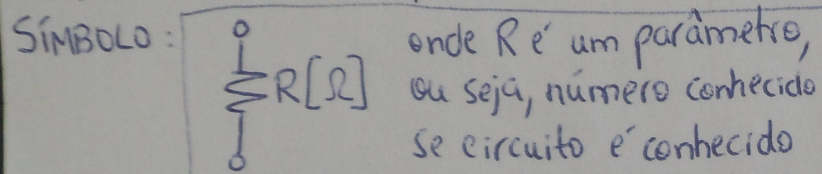 SÍMBOLO: onde R é um parâmetro,
R[Ω] ou seja, número conhecido
se circuito é conhecido